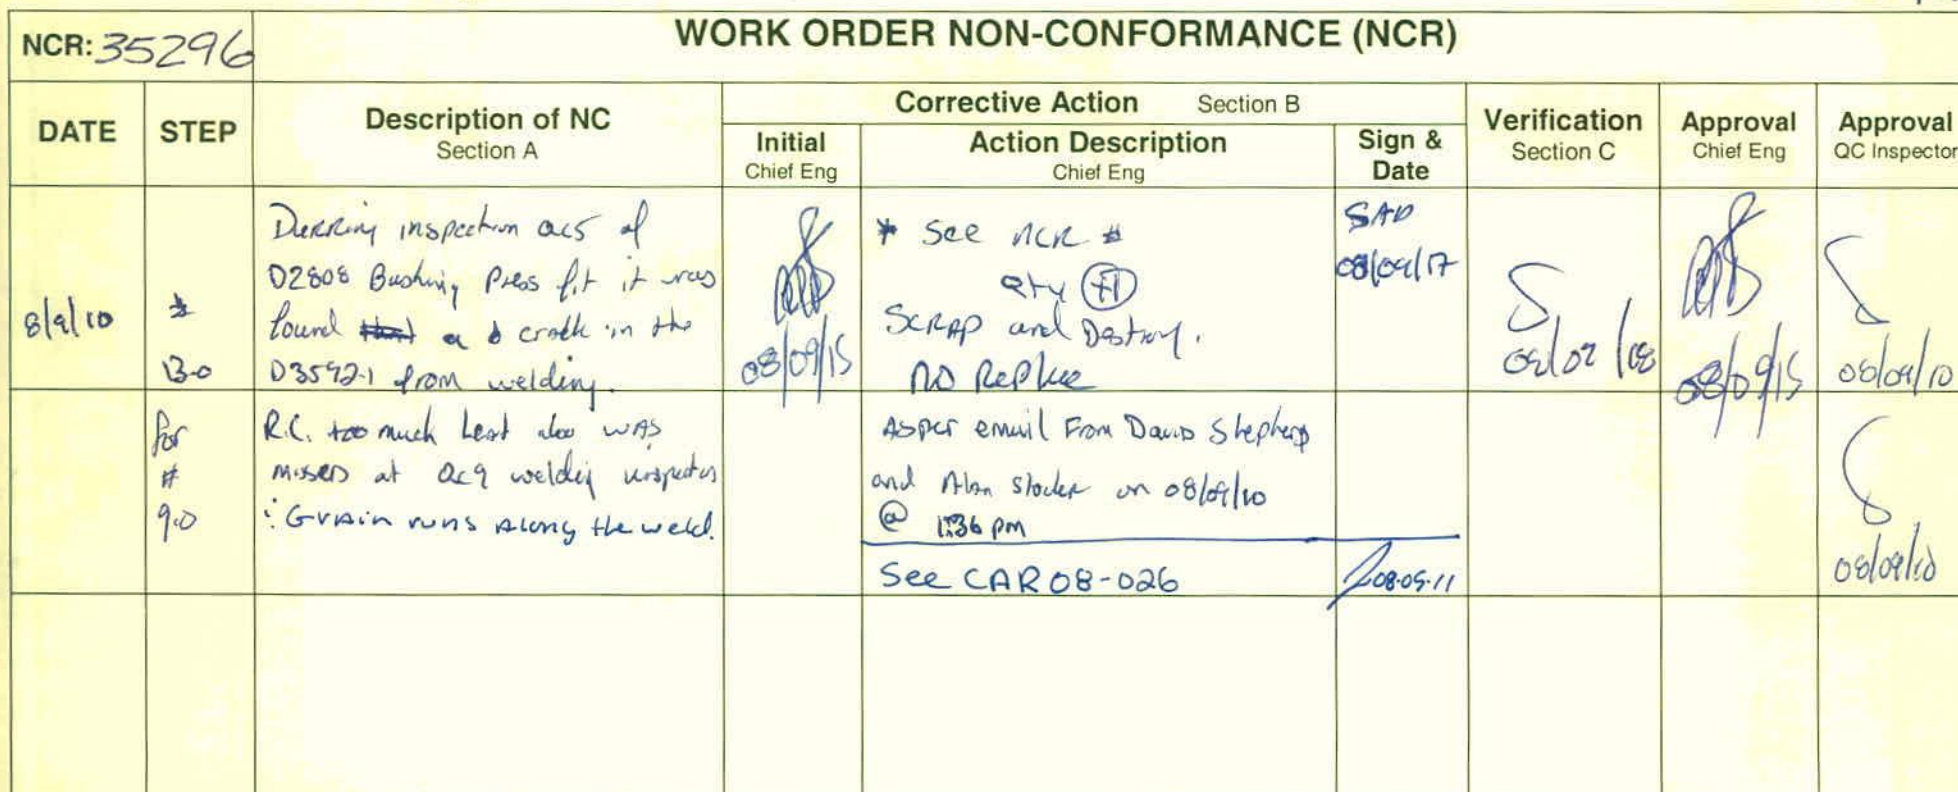 NCR: 35296
WORK ORDER NON-CONFORMANCE (NCR)
DATE
STEP
Description of NC
Section A
Corrective Action Section B
Initial
Chief Eng
Action Description
Chief Eng
Sign &
Date
Verification
Section C
Approval
Chief Eng
Approval
QC Inspector
8/9/10
13.0
inspection of
D2808 Bushing Press fit it was
found a crack in the
D3592-1 from welding.
08/09/15
* See NCR #
qty
SCRAP and Destroy.
NO Replace
SAD
08/09/17
08/09/15
08/09/10
for
#
9.0
R.C. too much heat also was
missed at QC9 welding
Grain runs along the weld.
As per email From David
and Alan on 08/09/10
@ 1:36 pm
08/09/10
See CAR 08-026
08.09.11